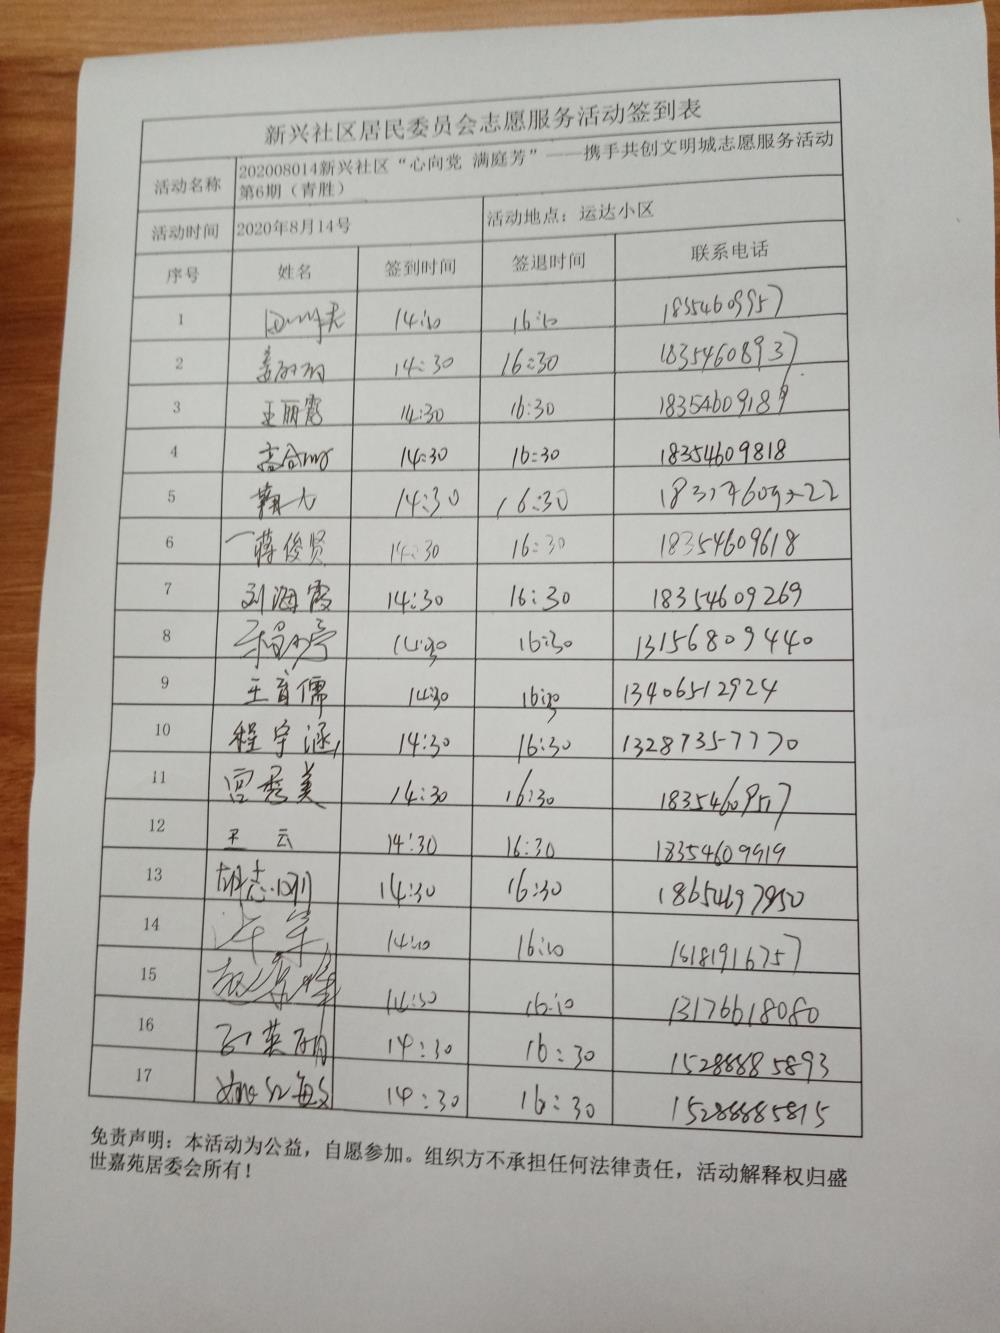 新兴社区居民委员会志愿服务活动签到表
活动名称 202008014新兴社区“心向党 满庭芳”——携手共创文明城志愿服务活动
第6期（青胜）
活动时间 2020年8月14号 活动地点：运达小区
序号 姓名 签到时间 签退时间 联系电话
1 14:30 16:30 18354609957
2 14:30 16:30 18354608937
3 王丽霞 14:30 16:30 18354609189
4 14:30 16:30 18354609818
5 14:30 16:30
6 蒋俊贤 14:30 16:30 18354609618
7 刘海霞 14:30 16:30 18354609269
8 14:30 16:30 13156809440
9 王育儒 14:30 16:30 13406512924
10 程宇涵 14:30 16:30 13287357770
11 宫秀美 14:30 16:30
12 王云 14:30 16:30 18354609919
13 胡志刚 14:30 16:30 18654697950
14 许军 14:30 16:30
15 14:30 16:30 13176618080
16 14:30 16:30 15288885893
17 14:30 16:30 15288885815
免责声明：本活动为公益，自愿参加。组织方不承担任何法律责任，活动解释权归盛
世嘉苑居委会所有！